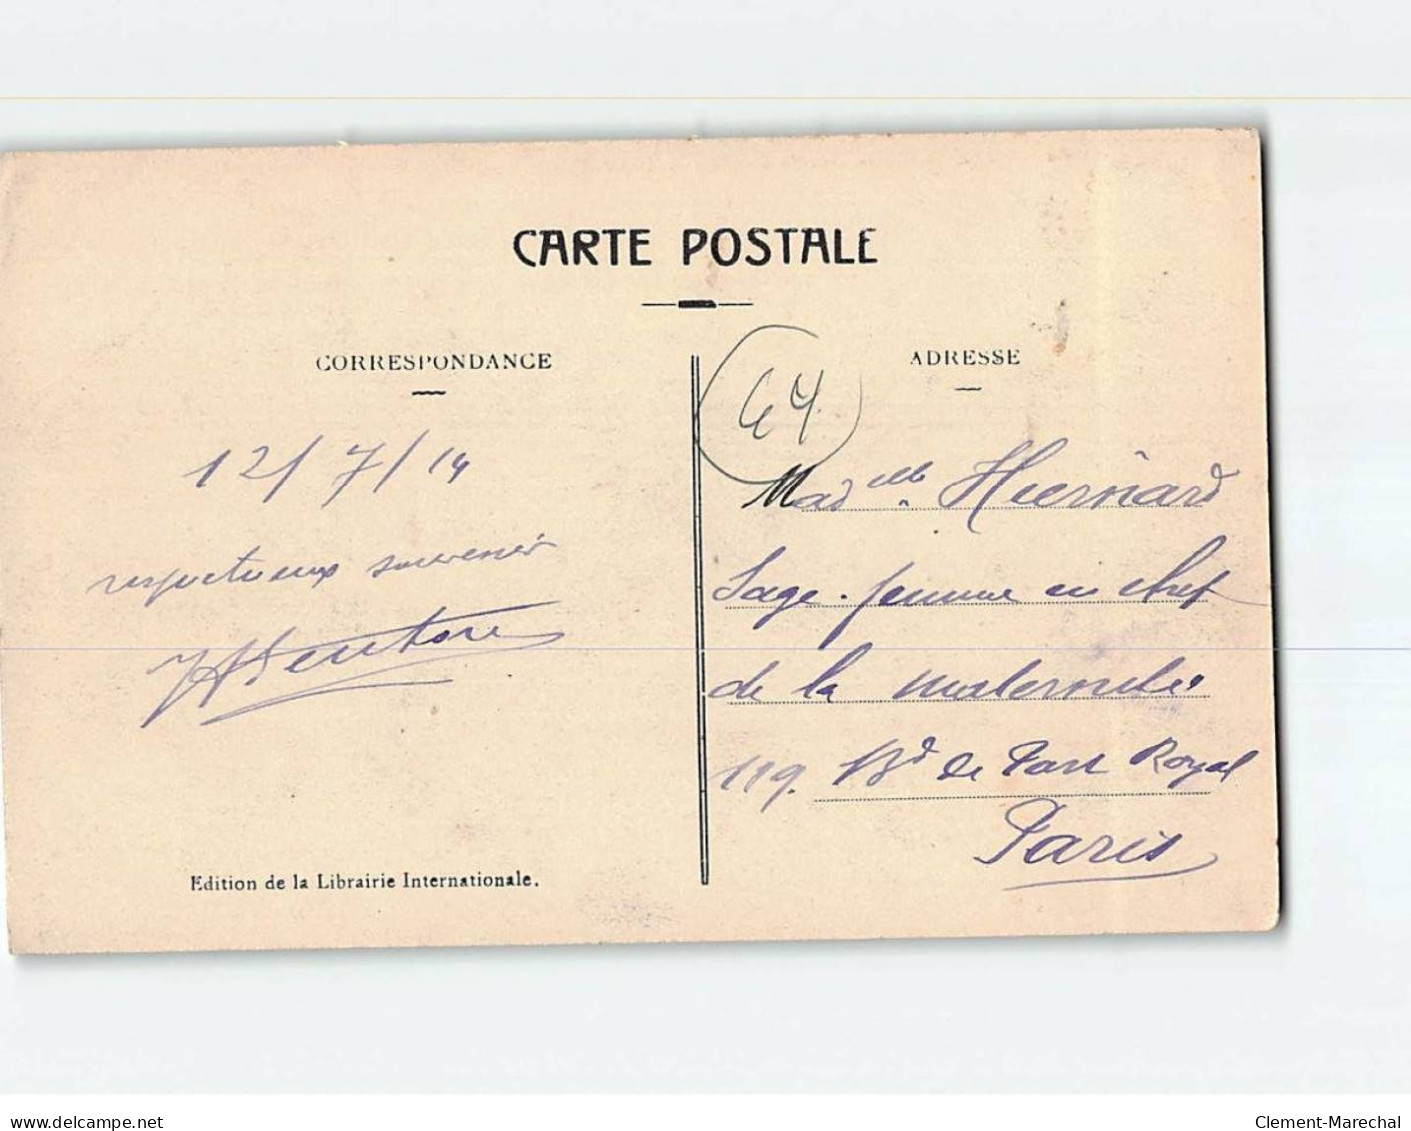 CARTE POSTALE
CORRESPONDANCE
ADRESSE
12/7/14
respectueux souvenir
Madelle
Sage-femme en chef
de la maternité
119. Bd de Port Royal
Paris
Edition de la Librairie Internationale.
delcampe.net
Clement-Marechal